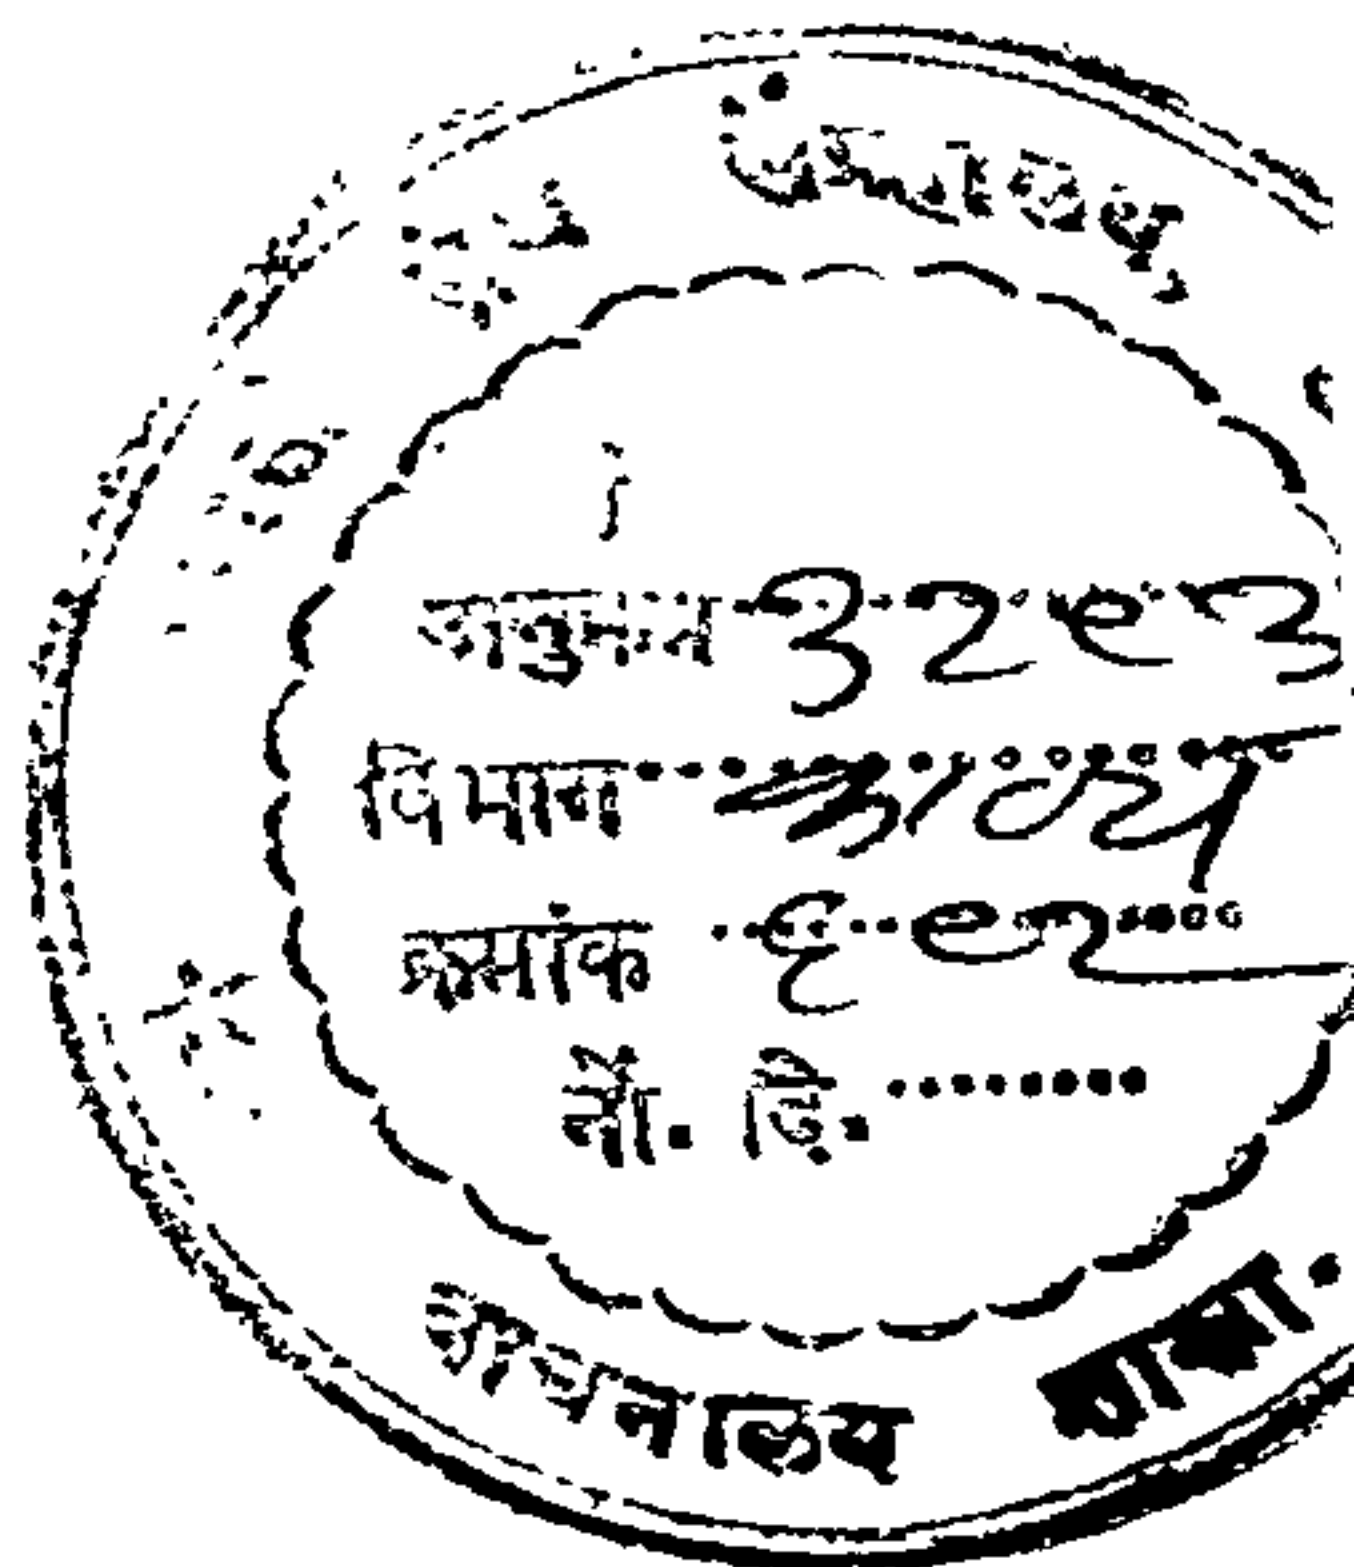 अनुक्रम ३२९३
विभाग काव्य
क्रमांक ६९२
नों. दि. ........
वाचनालय शाखा.